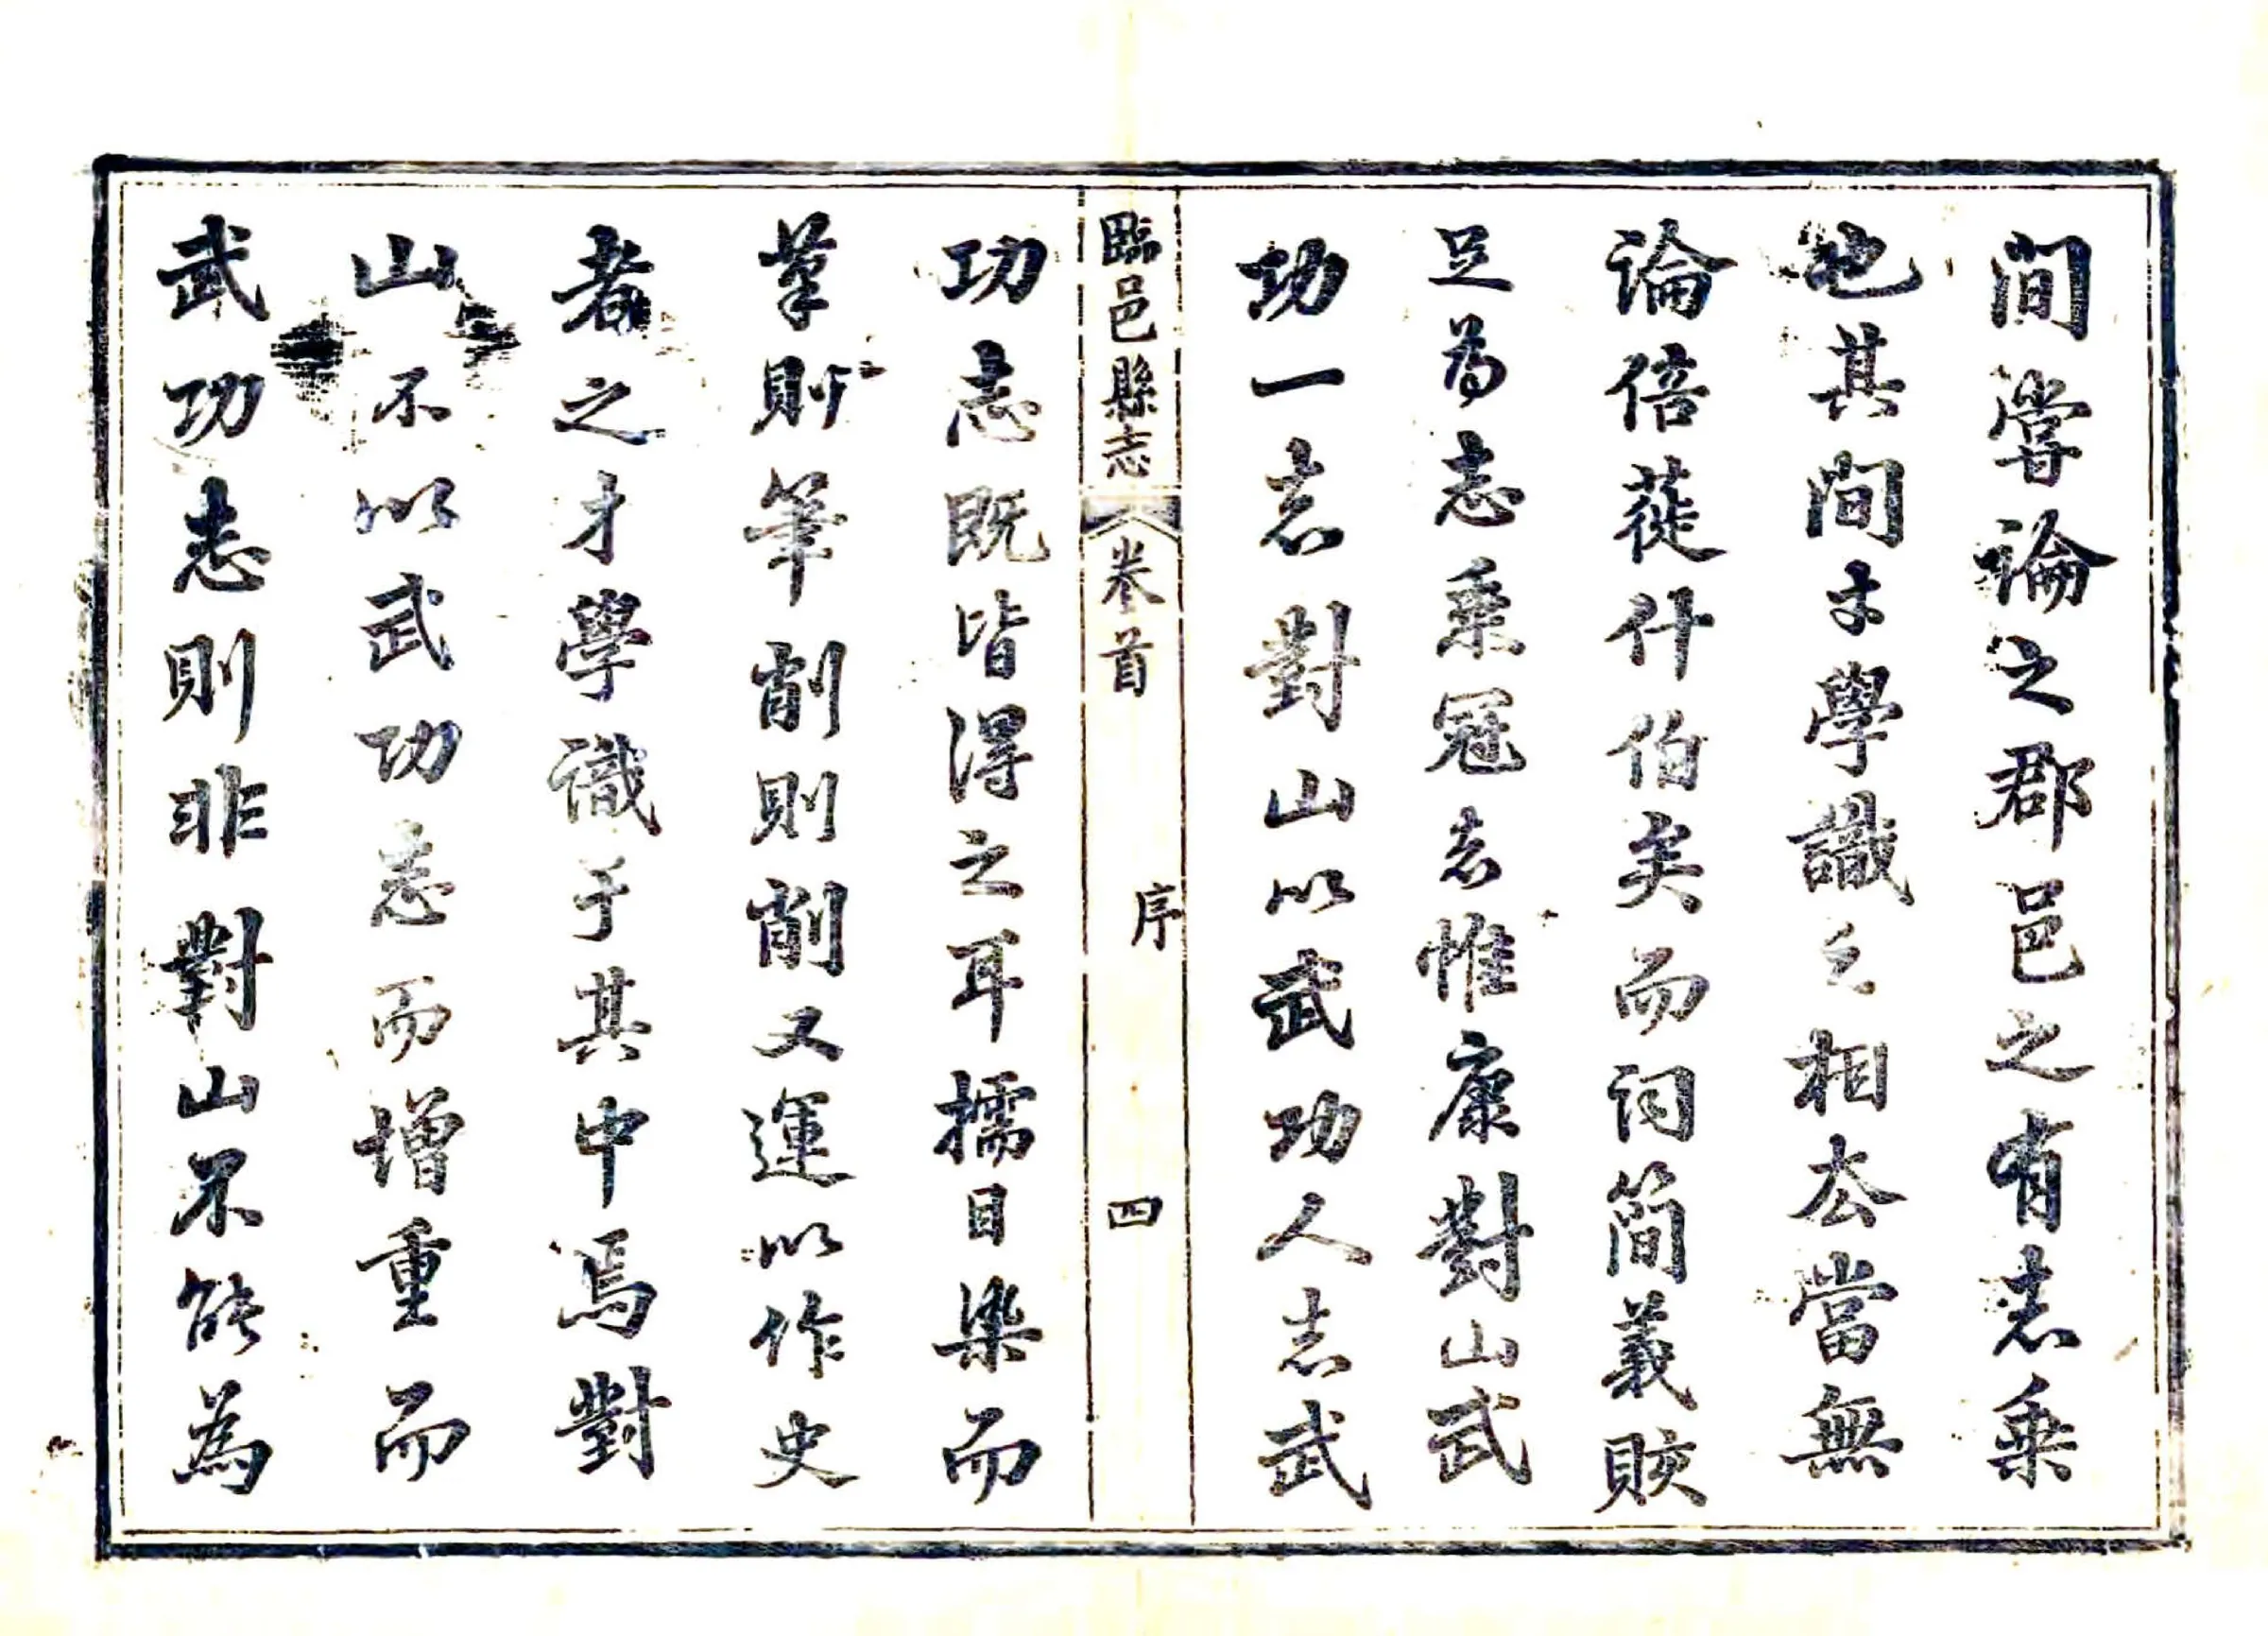 間嘗論之郡邑之有志乗
也其間才學識之相去當無
論倍蓰什伯矣而词简義賅
足為志乗冠者惟康對山武
功一志對山以武功人志武
臨邑縣志 卷首 序 四
功志既皆得之耳擩目染而
筆則筆削則削又運以作史
者之才學識于其中焉對
山不以武功志而增重而
武功志則非對山不能為